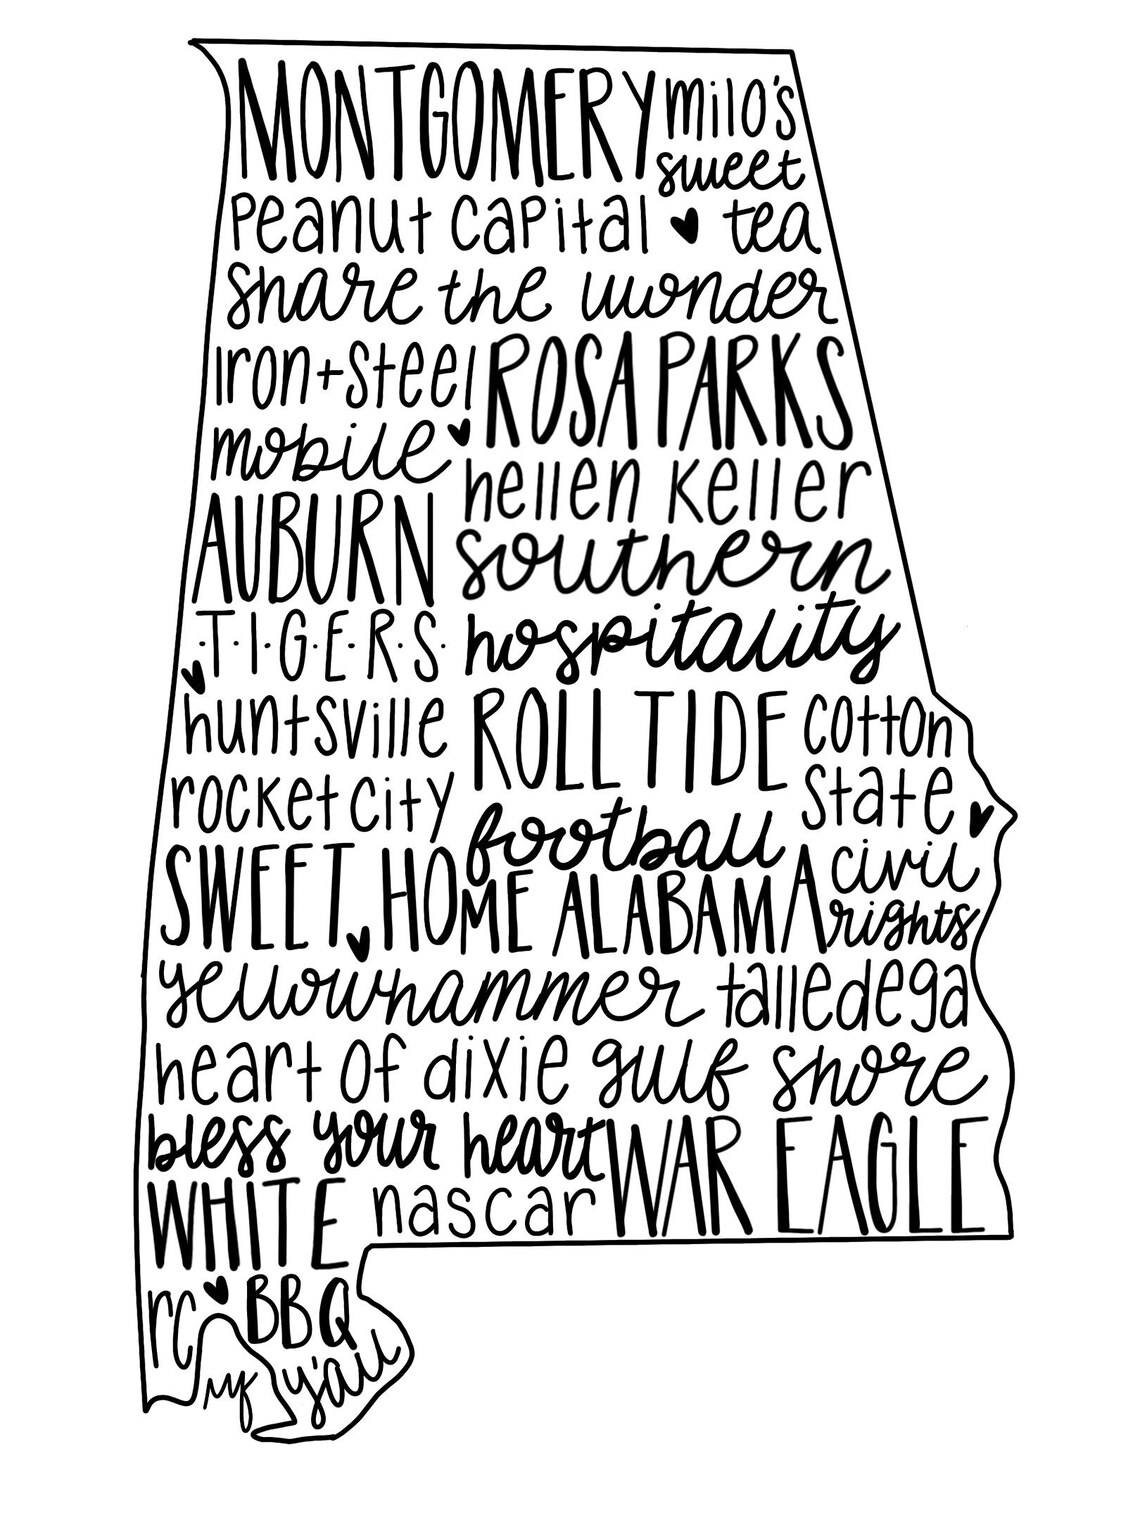 MONTGOMERY milo's
sweet
Peanut Capital tea
share the wonder
Iron+Steel ROSA PARKS
mobile
hellen Keller
AUBURN southern
T·I·G·E·R·S hospitality
huntsville ROLL TIDE cotton
rocket city state
football
SWEET HOME ALABAMA civil
rights
yellowhammer talledega
heart of dixie gulf shore
bless your heart WAR EAGLE
WHITE nascar
BBQ
rc
y'all